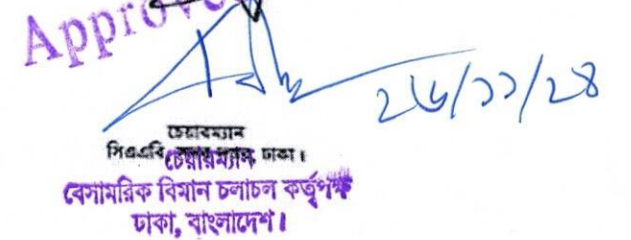 Approved
২৬/১১/২৪
চেয়ারম্যান
সিএএবি ঢাকা।
চেয়ারম্যান
বেসামরিক বিমান চলাচল কর্তৃপক্ষ
ঢাকা, বাংলাদেশ।